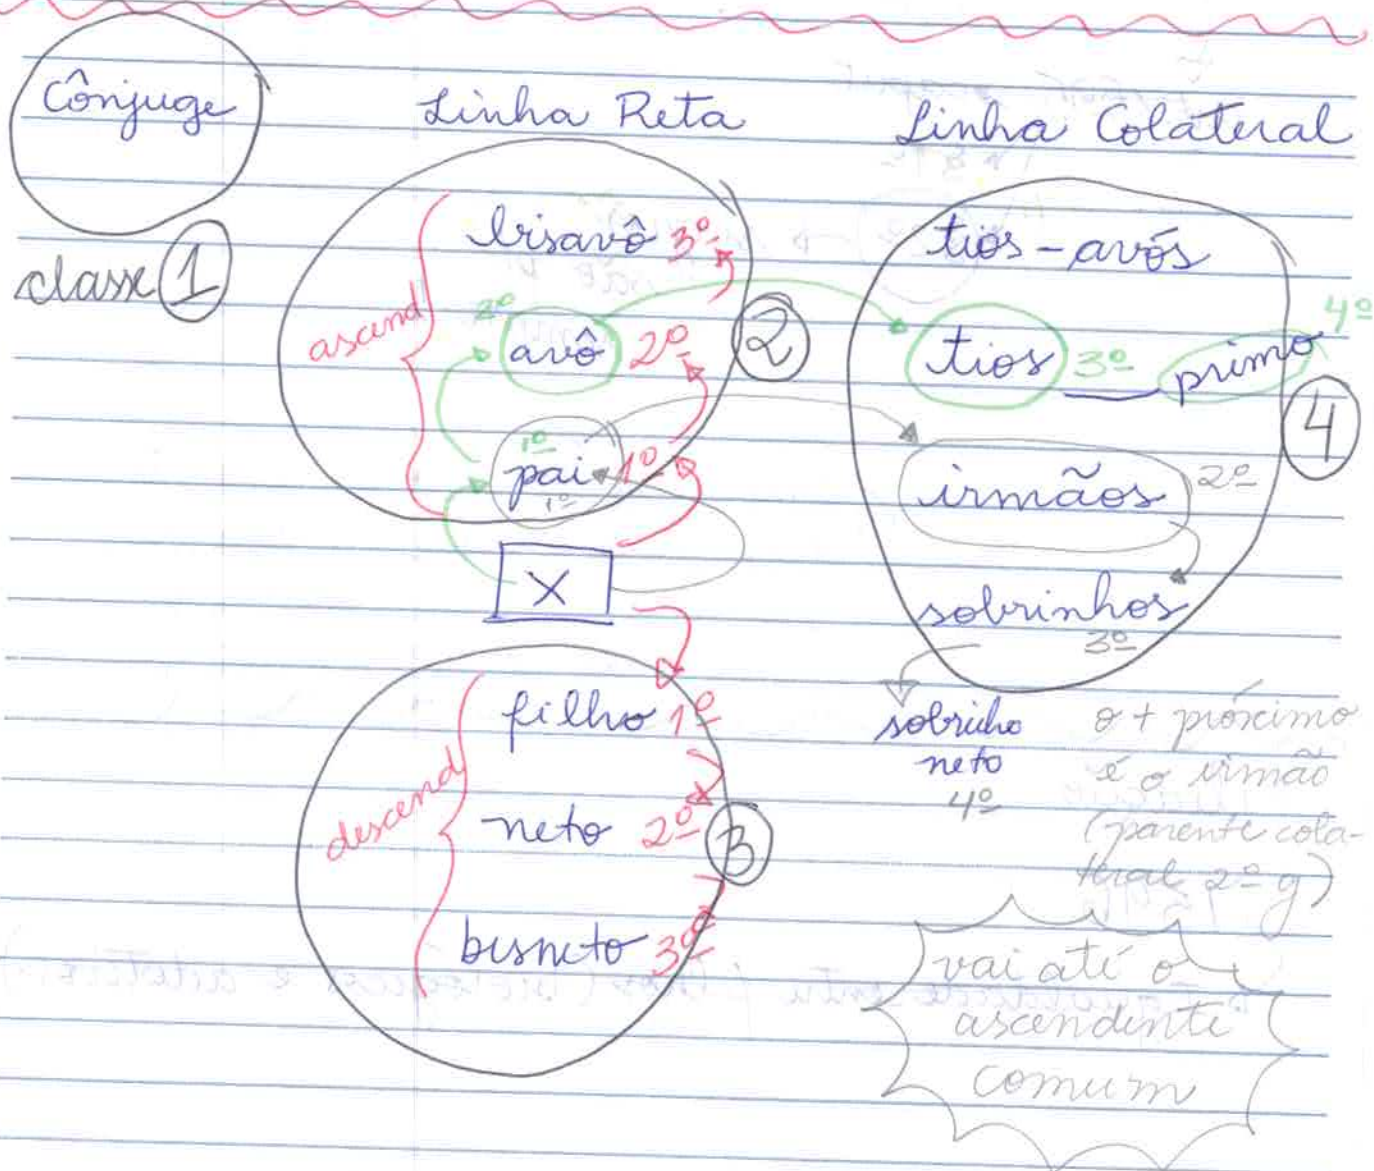 Cônjuge
classe 1
Linha Reta
ascend
bisavô 3º
2º
avô 2º
2
1º
pai 1º
1º
X
descend
filho 1º
neto 2º
3
bisneto 3º
Linha Colateral
tios-avós
tios 3º primo 4º
4
irmãos 2º
sobrinhos
3º
sobrinho
neto
4º
o + próximo
é o irmão
(parente cola-
teral 2º g)
vai até o
ascendente
comum